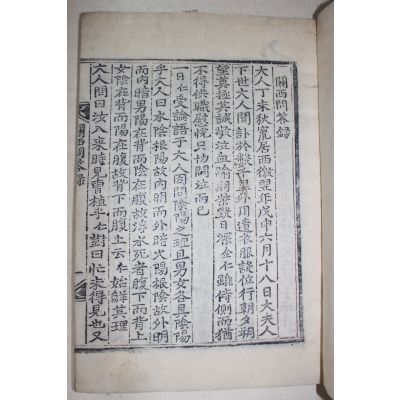 關西問答録
大人丁未秋竄居西徼翌年戊申六月十八日大夫人
下世大人聞訃於數千里外用遺衣服設位行朝夕朔
望奠極其誠敬泣血踰期毀日深全仁雖侍側而猶
不得供職慰悅只切悶泣而已
一日仁受論語于大人因問陰陽之理且男女各具陰陽
乎大人曰水陰根陽故內明而外暗火陽根陰故外明
而內暗男陽在背而陰在腹故溺水死者腹下而背上
女陰在背而陽在腹故背下而腹上云仁始解其理
大人問曰汝入來時見曹植乎仁對曰忙未得見也又
關西問答録